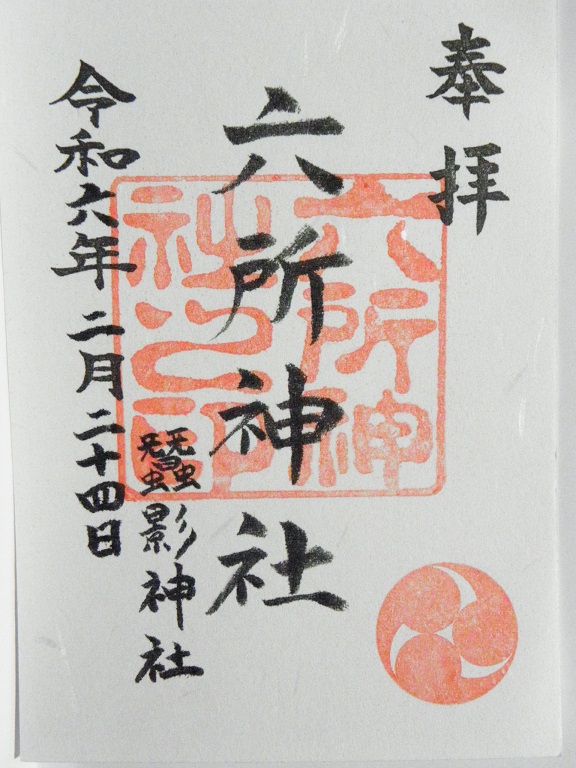 奉拝
六所神社
六所神社之印
蠶影神社
令和六年二月二十四日